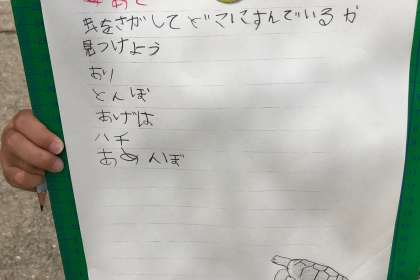 めあて
虫をさがしてどこにすんでいるか
見つけよう
あり
とんぼ
あげは
ハチ
あめんぼ